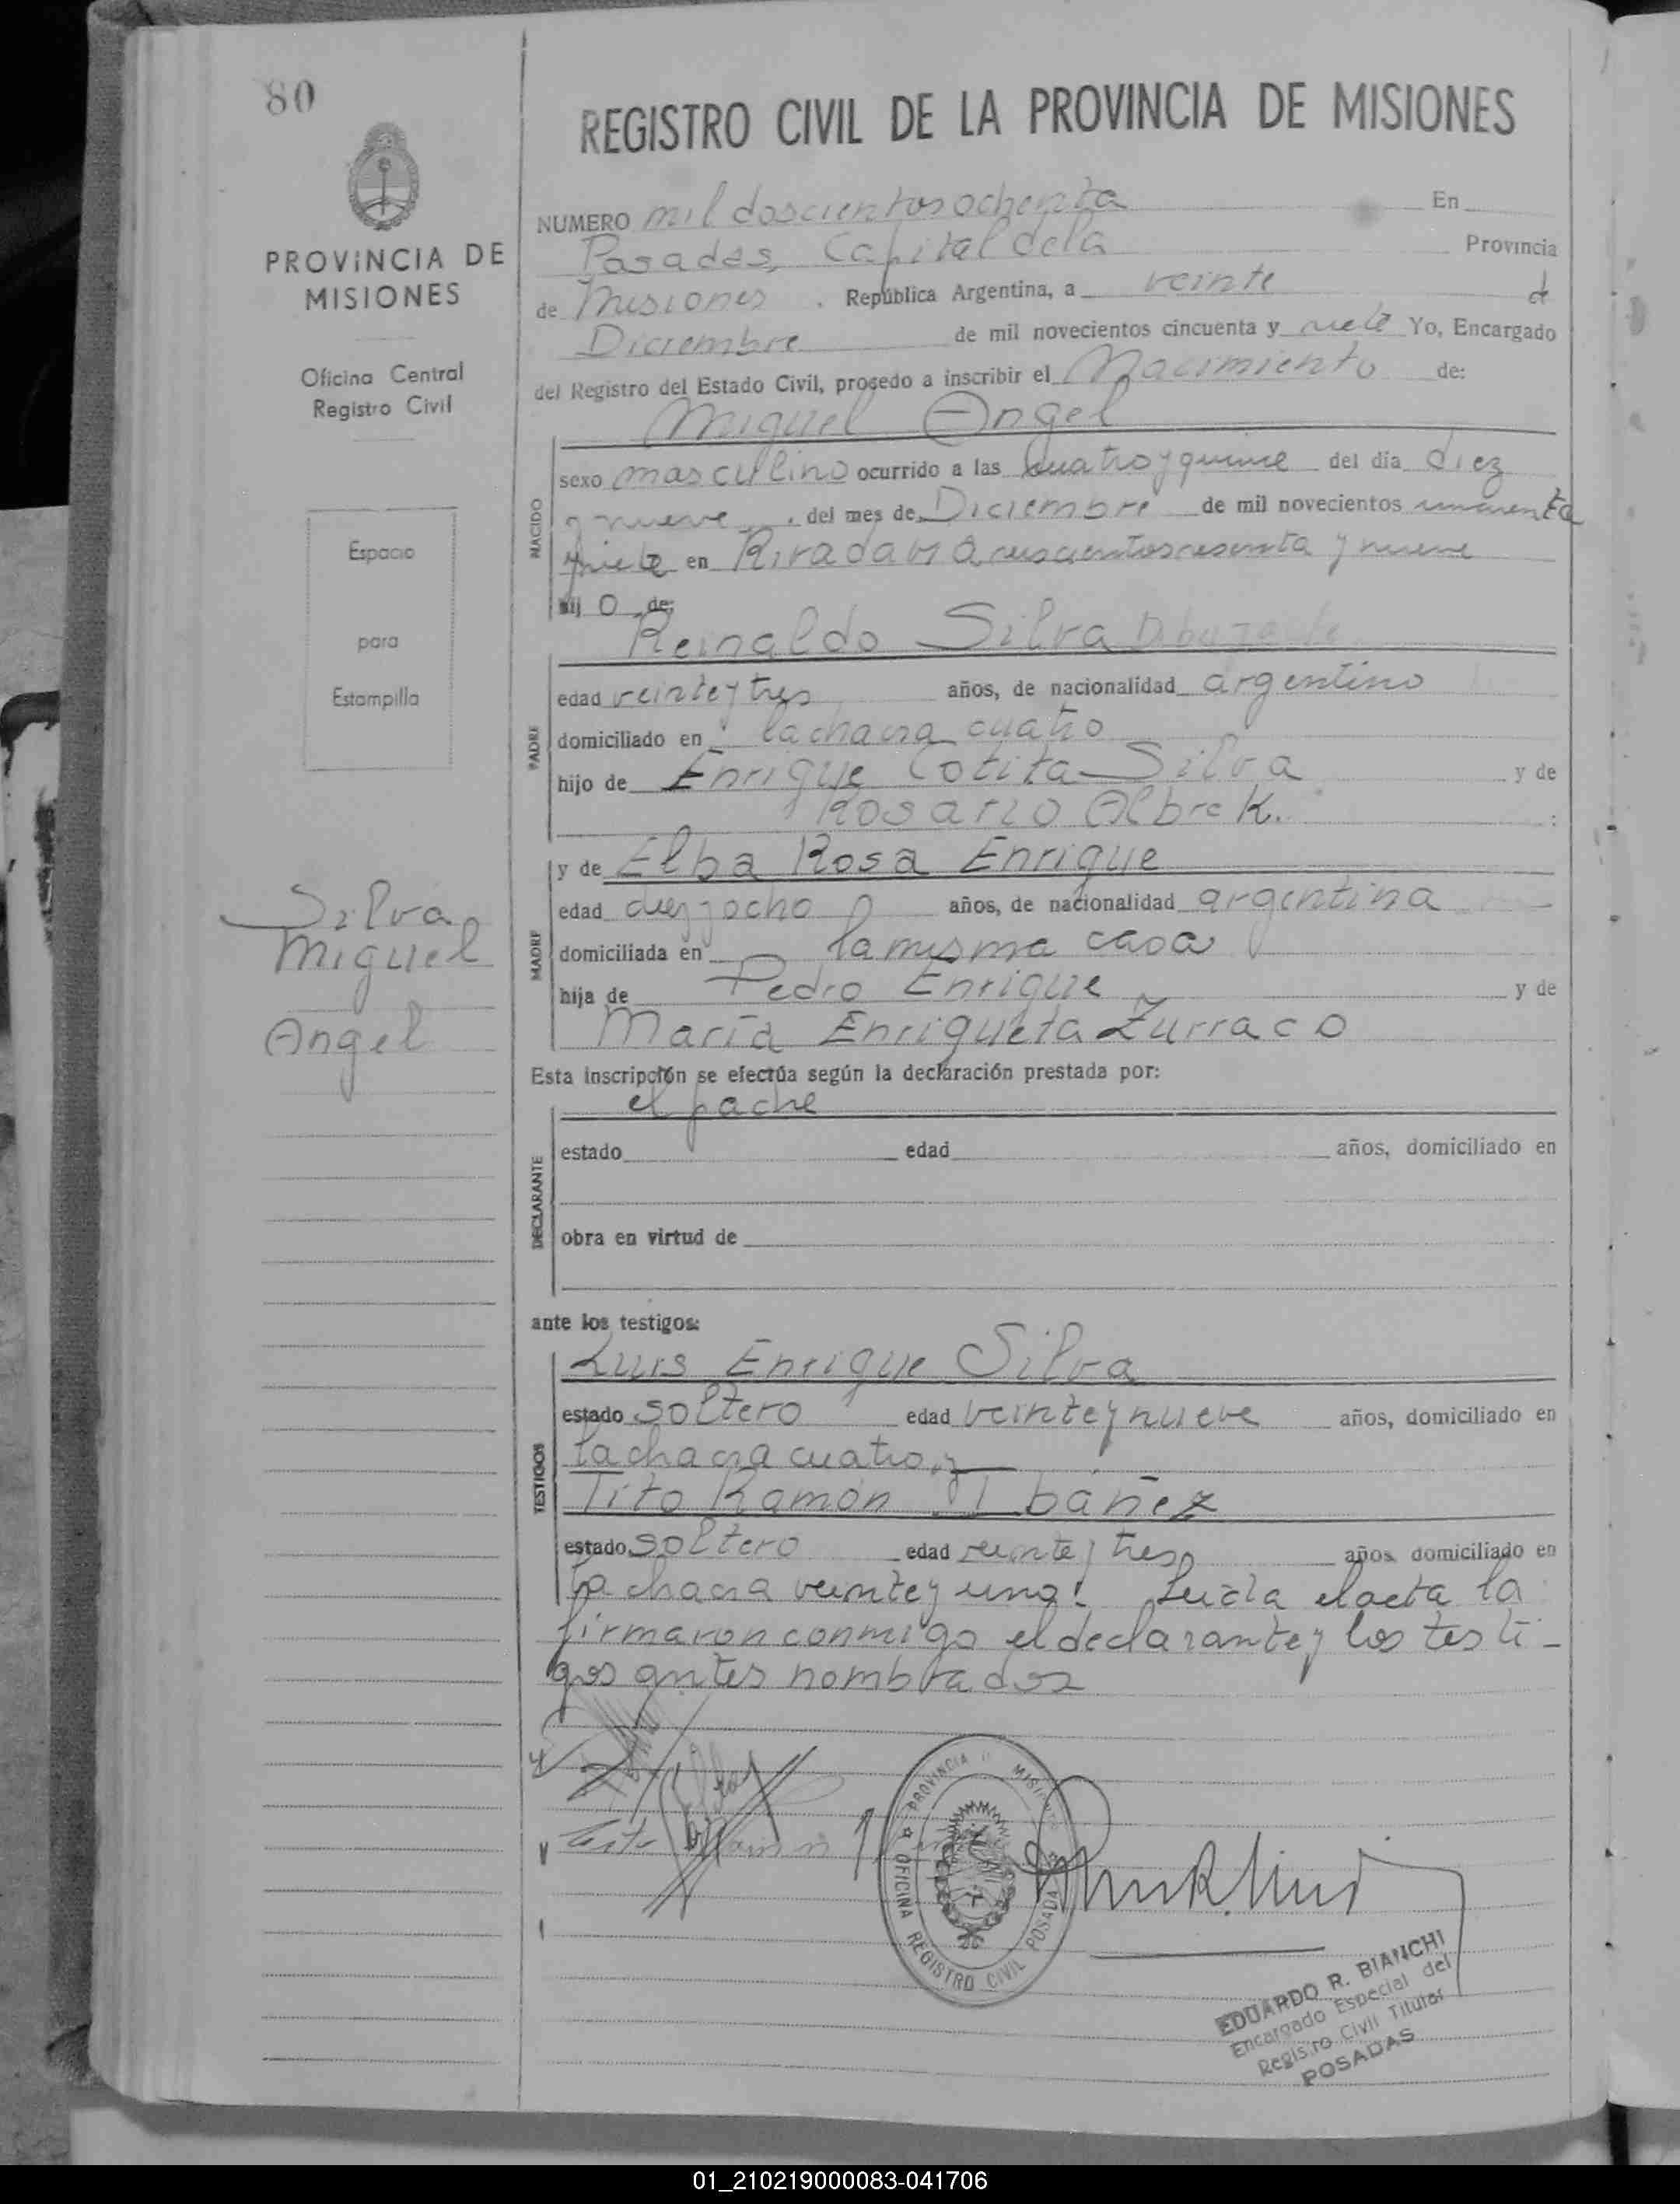 80
REGISTRO CIVIL DE LA PROVINCIA DE MISIONES
PROVINCIA DE
MISIONES
Oficina Central
Registro Civil
Espacio
para
Estampilla
Silva
Miguel
Angel
NUMERO mil doscientos ochenta En
Posadas, Capital de la Provincia
de Misiones . República Argentina, a veinte de
Diciembre de mil novecientos cincuenta y siete Yo, Encargado
del Registro del Estado Civil, prosedo a inscribir el Nacimiento de:
Miguel Angel
NACIDO
sexo masculino ocurrido a las cuatro y quince del día diez
y nueve , del mes de Diciembre de mil novecientos cincuenta
y siete en Rivadavia seiscientos sesenta y nueve
hij o de:
Reinaldo Silva
PADRE
edad veinte y tres años, de nacionalidad argentino
domiciliado en la chacra cuatro
hijo de Enrique Cotita Silva y de
Rosario Albrek.
y de Elba Rosa Enrique
MADRE
edad diez y ocho años, de nacionalidad argentina
domiciliada en la misma casa
hija de Pedro Enrique y de
María Enriqueta Zurraco
Esta inscripción se efectúa según la declaración prestada por:
el padre
DECLARANTE
estado edad años, domiciliado en
obra en virtud de
ante los testigos:
Luis Enrique Silva
TESTIGOS
estado soltero edad veinte y nueve años, domiciliado en
la chacra cuatro, y
Tito Ramón Ibáñez
estado soltero edad veinte y tres años domiciliado en
la chacra veinte y una. Leída el acta la
firmaron conmigo el declarante y los testi-
gos antes nombrados
PROVINCIA MISIONES
OFICINA REGISTRO CIVIL POSADAS
EDUARDO R. BIANCHI
Encargado Especial del
Registro Civil Titular
POSADAS
01_210219000083-041706